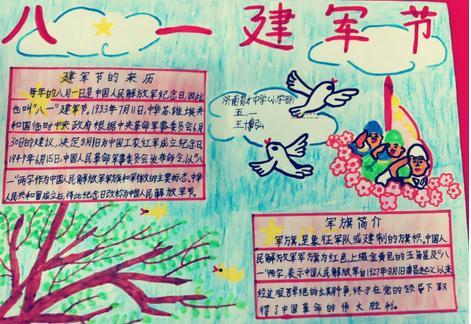 八一建军节
建军节的来历
每年的八月一日是中国人民解放军纪念日,因此
也叫"八一"建军节。1933年7月11日,中华苏维埃共
和国临时中央政府根据中央革命军事委员会6月
30日的建议,决定8月1日为中国工农红军成立纪念日
1949年6月15日,中国人民革命军事委员会发布命令,以"八
一"两字作为中国人民解放军军旗和军徽的主要标志。中华
人民共和国成立后,将此纪念日改称为中国人民解放军建军节。
济南育才中学(小学部)
五.一
王博弘
军旗简介
军旗,是象征军队或建制的旗帜。中国人
民解放军军旗为红色,上缀金黄色的五角星及"八
一"两字,表示中国人民解放军自1927年8月1日南昌起义以来
经过艰苦卓绝的长期斗争,终于在党的领导下取
得了中国革命的伟大胜利。